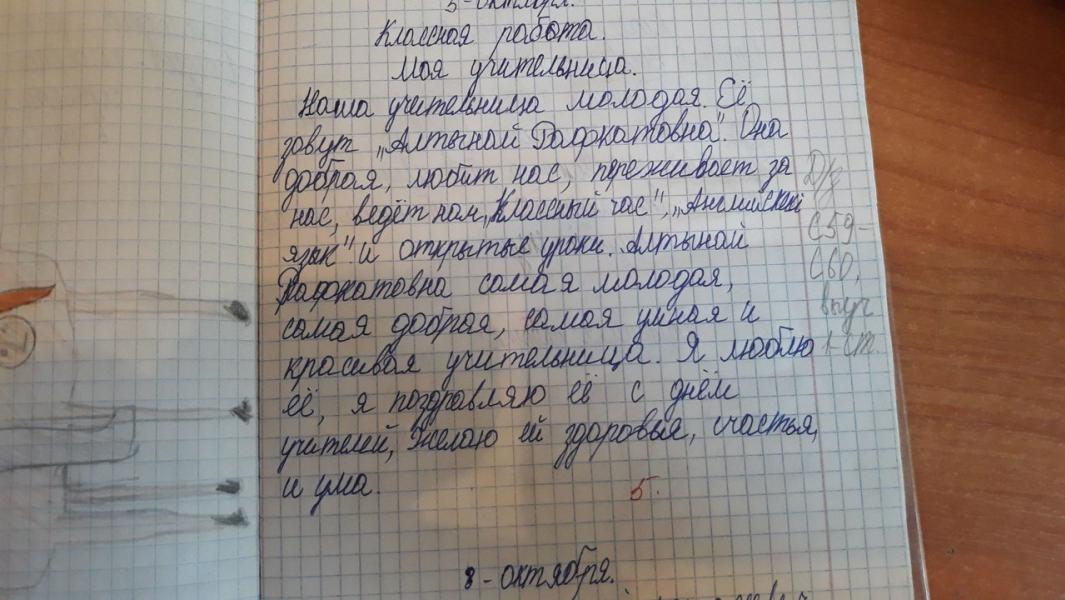 5-октября.
Классная работа.
Моя учительница.
Наша учительница молодая. Её
зовут „Алтынай Рафкатовна". Она
добрая, любит нас, переживает за
нас, ведёт нам „Классный час", „Английский
язык" и открытые уроки. Алтынай
Рафкатовна самая молодая,
самая добрая, самая умная и
красивая учительница. Я люблю
её, я поздравляю её с днём
учителей, желаю ей здоровья, счастья,
и ума.
5.
Д/з
С59-
С60,
выуч
1 ст.
8-октября.